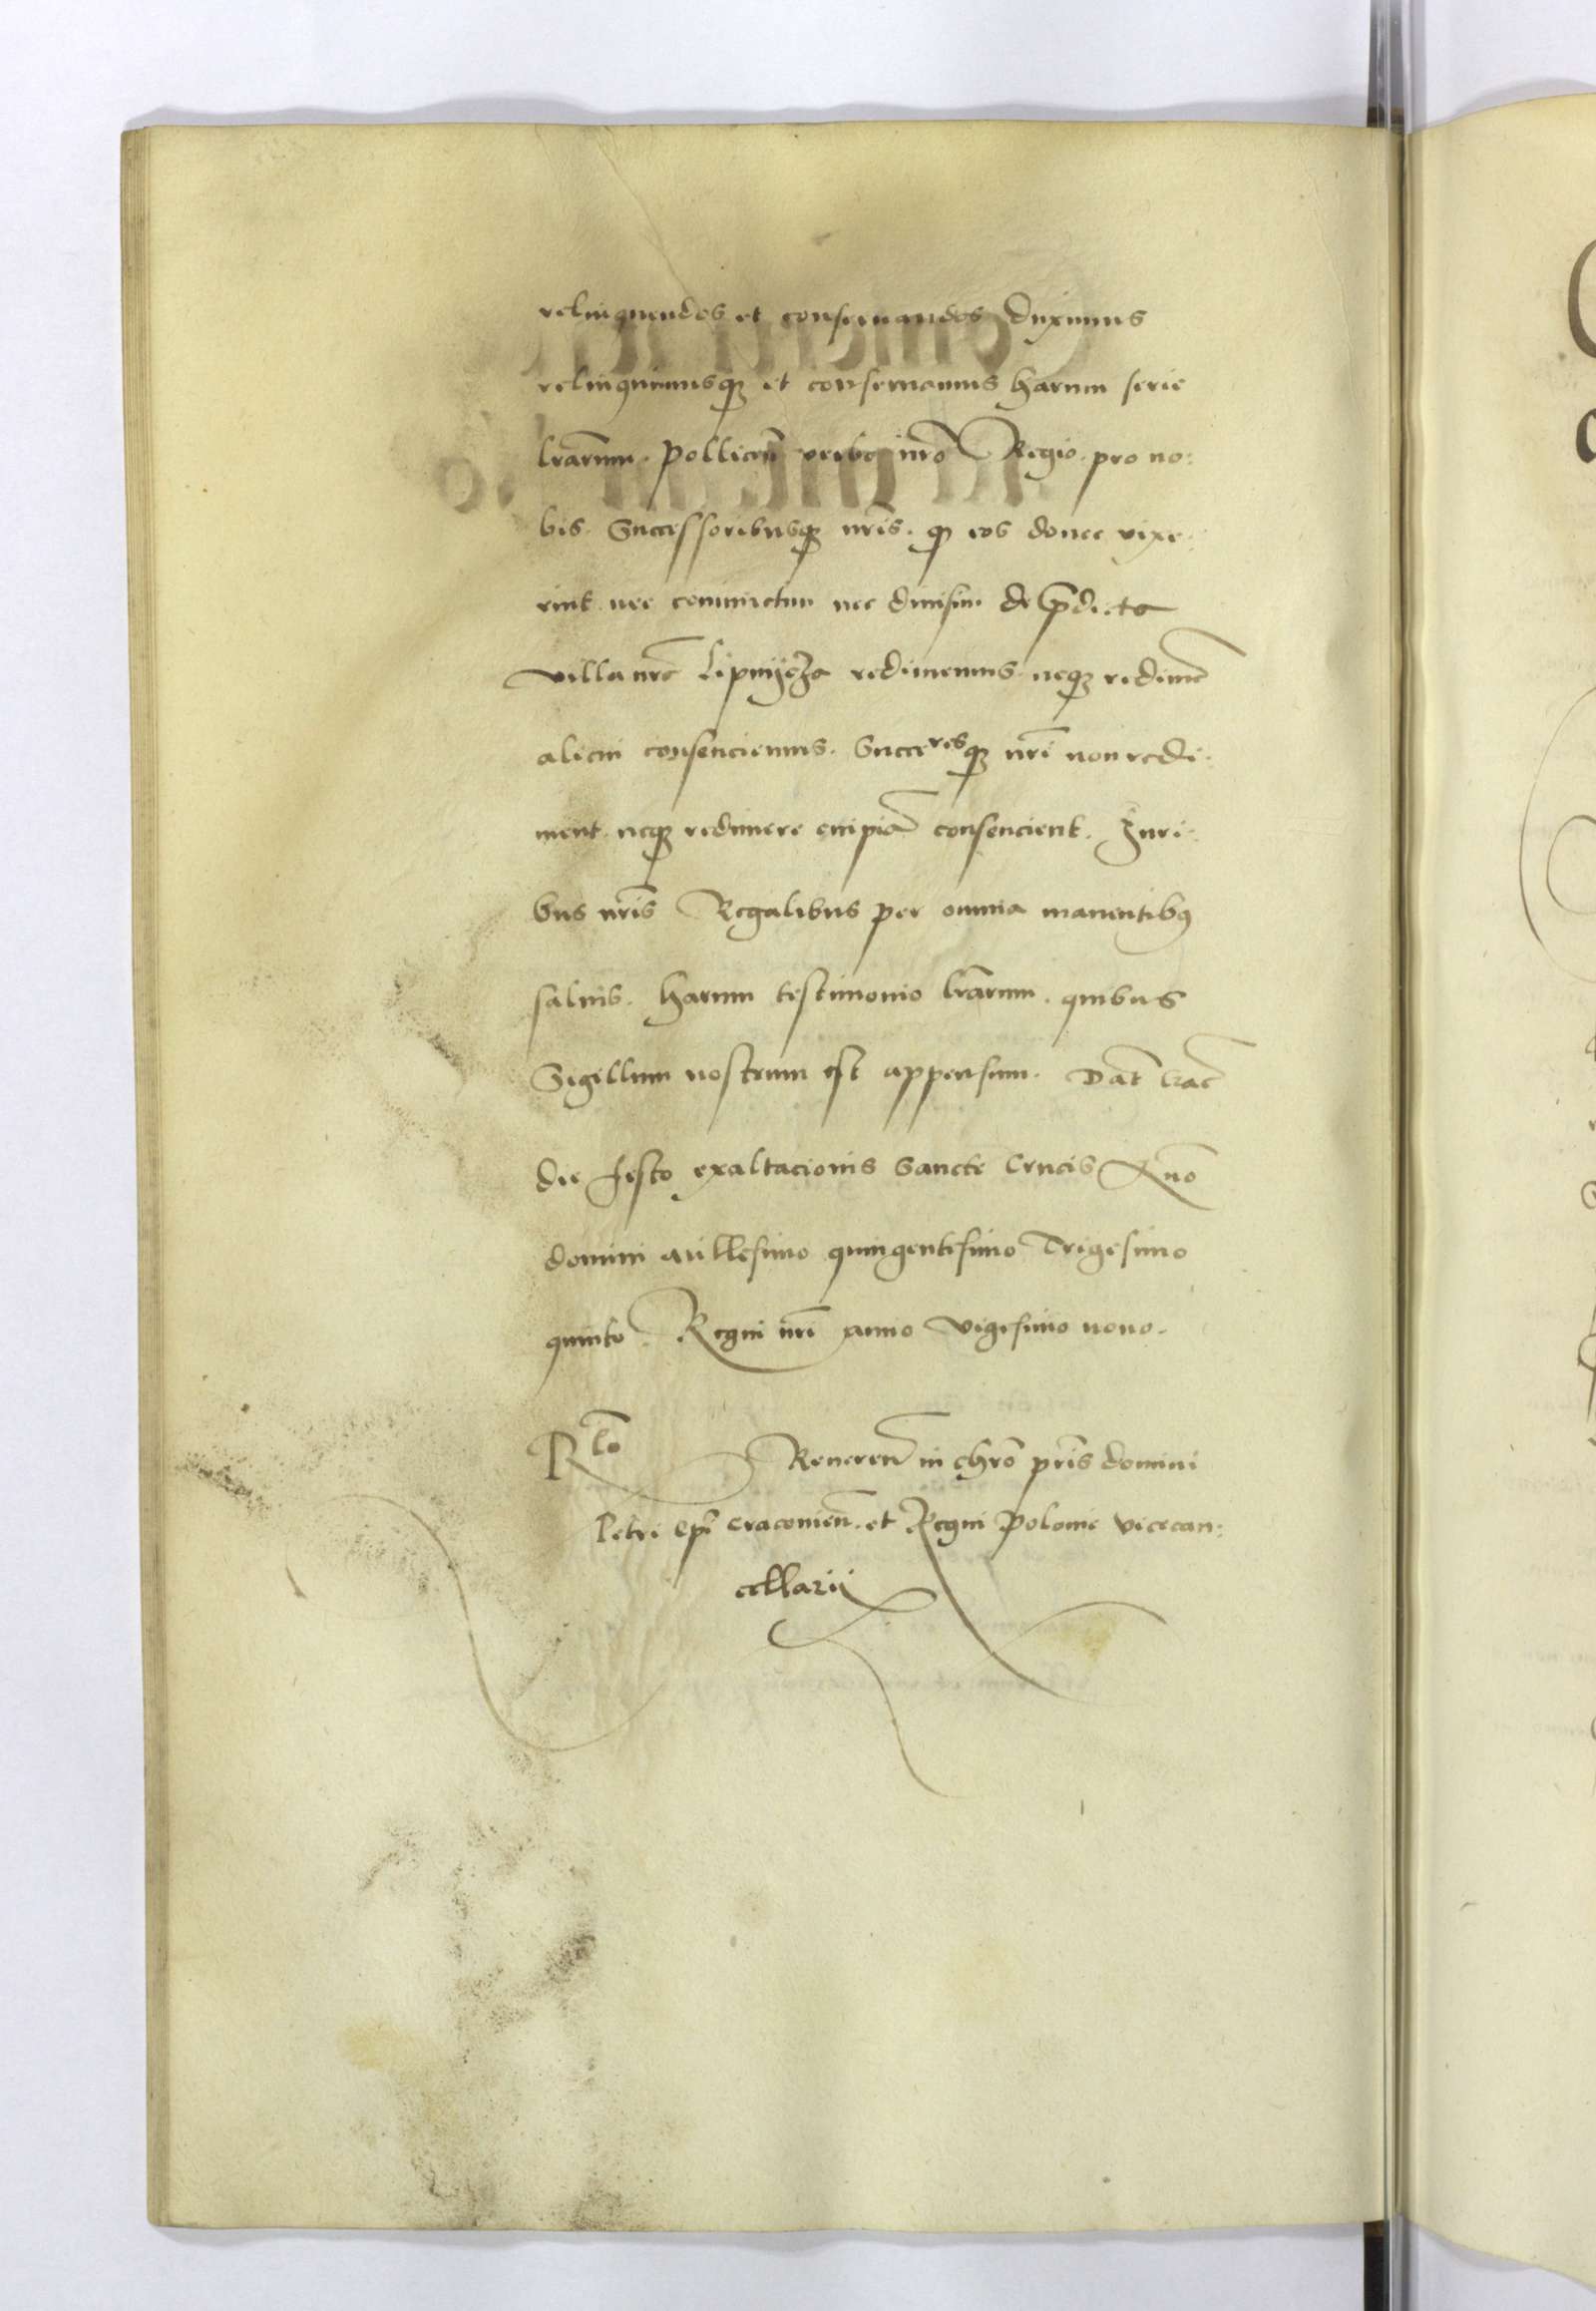 relinquendos et conseruandos duximus
relinquimusq₃ et conseruamus harum serie
lr̃arum. pollicen̄ verbo nr̃o Regio. pro no:
bis. Successoribusq₃ nr̃is. ꝙ eos donec vixe:
rint nec coniunctim nec diuisim de p̄dicta
villa nr̃a Lipnycza redimemus. neq₃ redimer̃
alicui consenciemus. Succeresq₃ nr̃i non redi:
ment neq₃ redimere cuipiã consencient. Juri:
bus nr̃is Regalibus per omnia manentibꝯ
saluis. harum testimonio lr̃arum. quibus
Sigillum nostrum est appensum. Dat̃ Crac̃
die festo exaltacionis Sancte Crucis Anno
domini Millesimo quingentesimo Trigesimo
quinto. Regni nr̃i anno vigesimo nono.
Rlõ Reueren̄ in chro p̃ris domini
Petri Ep̃i Cracouien̄. et Regni Polonie vicecan:
cellarij